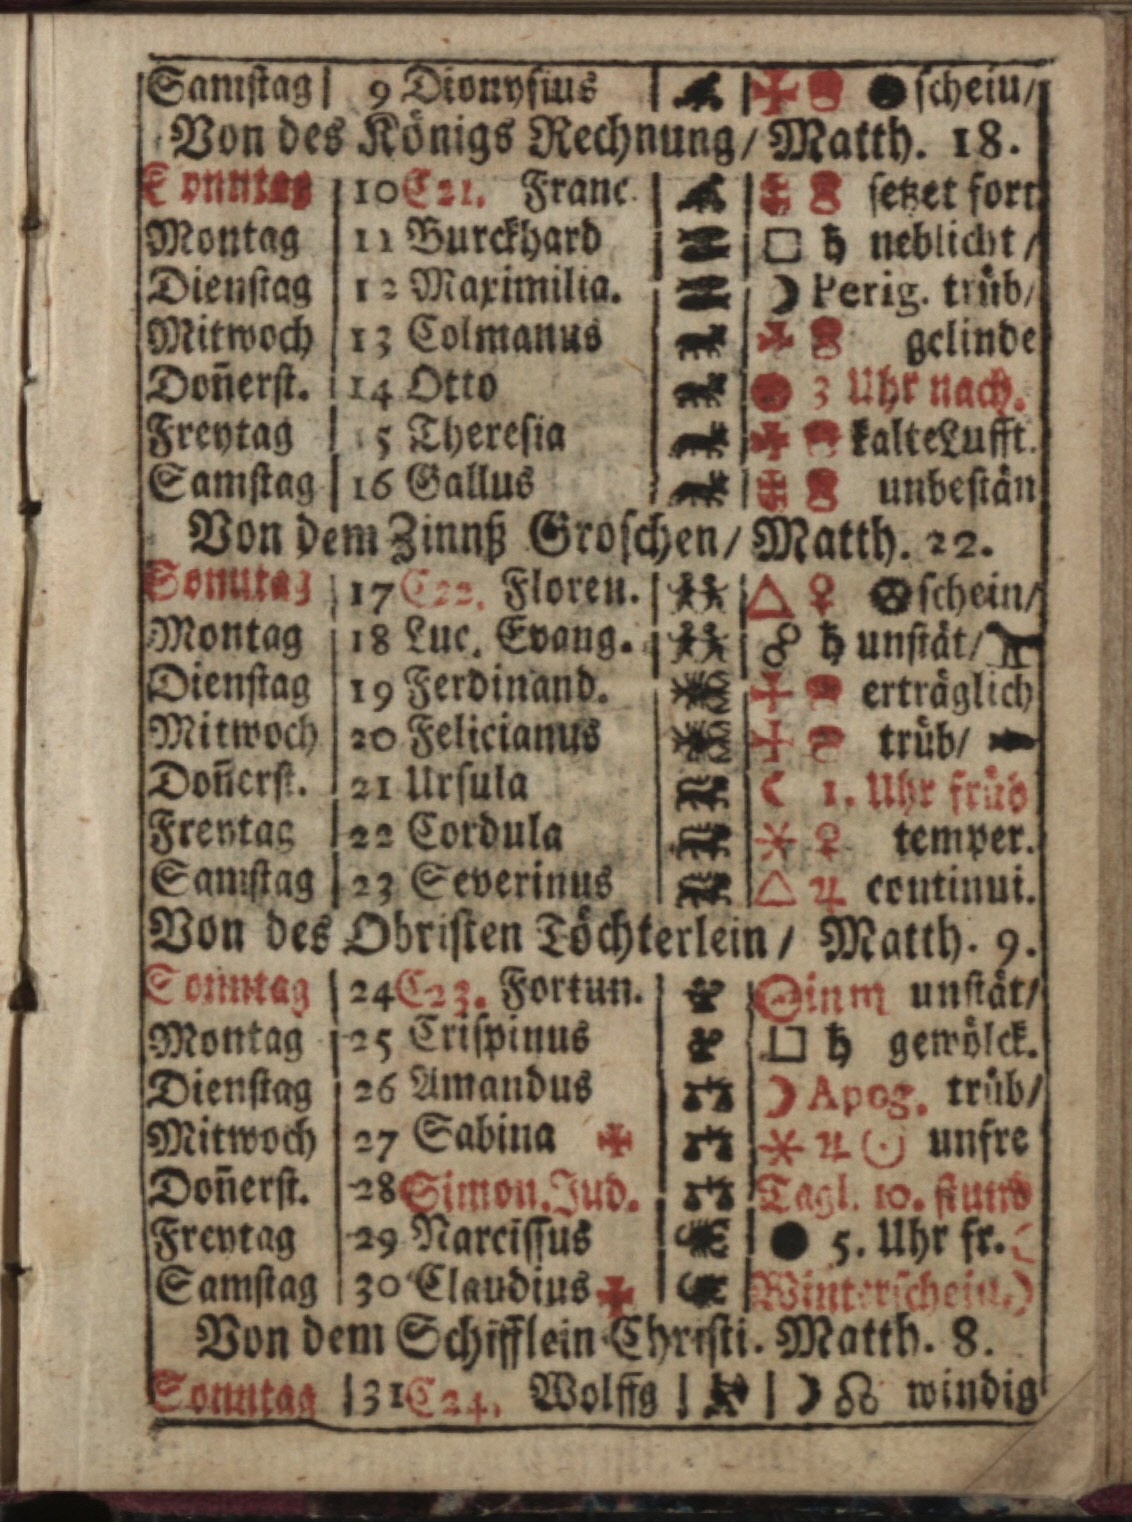 Samſtag 9 Dionyſius ſchein/
Von des Königs Rechnung/ Matth. 18.
Sonntag 10 C21. Franc ſetzet fort
Montag 11 Burckhard □ ♄ neblicht/
Dienſtag 12 Maximilia. ☽ Perig. trüb/
Mitwoch 13 Colmanus gelinde
Don̄erſt. 14 Otto 3 Uhr nach.
Freytag 15 Thereſia kalte Lufft.
Samſtag 16 Gallus unbeſtän
Von dem Zinnß Groſchen/ Matth. 22.
Sonntag 17 C22. Floren. △ ♀ ſchein/
Montag 18 Luc. Evang. ☍ ♄ unſtät/
Dienſtag 19 Ferdinand. erträglich
Mitwoch 20 Felicianus trüb/
Don̄erſt. 21 Urſula ☾ 1. Uhr früh
Freytag 22 Cordula ⚹ ♀ temper.
Samſtag 23 Severinus △ ♃ continui.
Von des Obriſten Töchterlein/ Matth. 9.
Sonntag 24 C23. Fortun. ☉ in ♏ unſtät/
Montag 25 Criſpinus □ ♄ gewölck.
Dienſtag 26 Amandus ☽ Apog. trüb/
Mitwoch 27 Sabina ✠ ⚹ ♃ ☉ unfre
Don̄erſt. 28 Simon. Jud. Tagl. 10. ſtund
Freytag 29 Narciſſus ● 5. Uhr fr.
Samſtag 30 Claudius ✠ Winterſchein.)
Von dem Schifflein Chriſti. Matth. 8.
Sonntag 31 C24. Wolffg ☽ ☊ windig